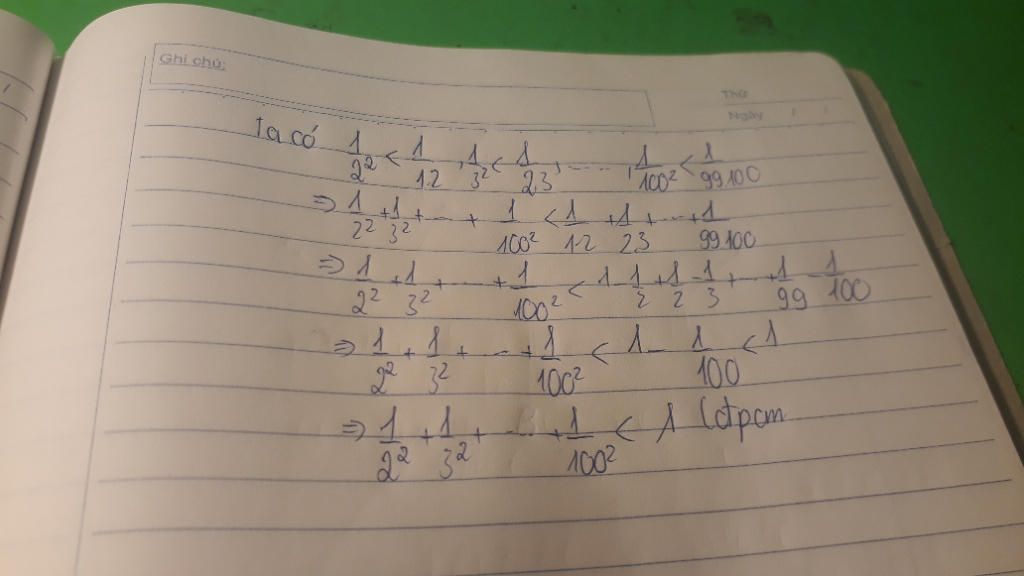 Ghi chú:
Thứ
Ngày / /
Ta có 1/2² < 1/1.2 , 1/3² < 1/2.3 , ..... , 1/100² < 1/99.100
⇒ 1/2² + 1/3² + ... + 1/100² < 1/1.2 + 1/2.3 + ... + 1/99.100
⇒ 1/2² + 1/3² + .... + 1/100² < 1 - 1/2 + 1/2 - 1/3 + ... + 1/99 - 1/100
⇒ 1/2² + 1/3² + ... + 1/100² < 1 - 1/100 < 1
⇒ 1/2² + 1/3² + .... + 1/100² < 1 (đpcm